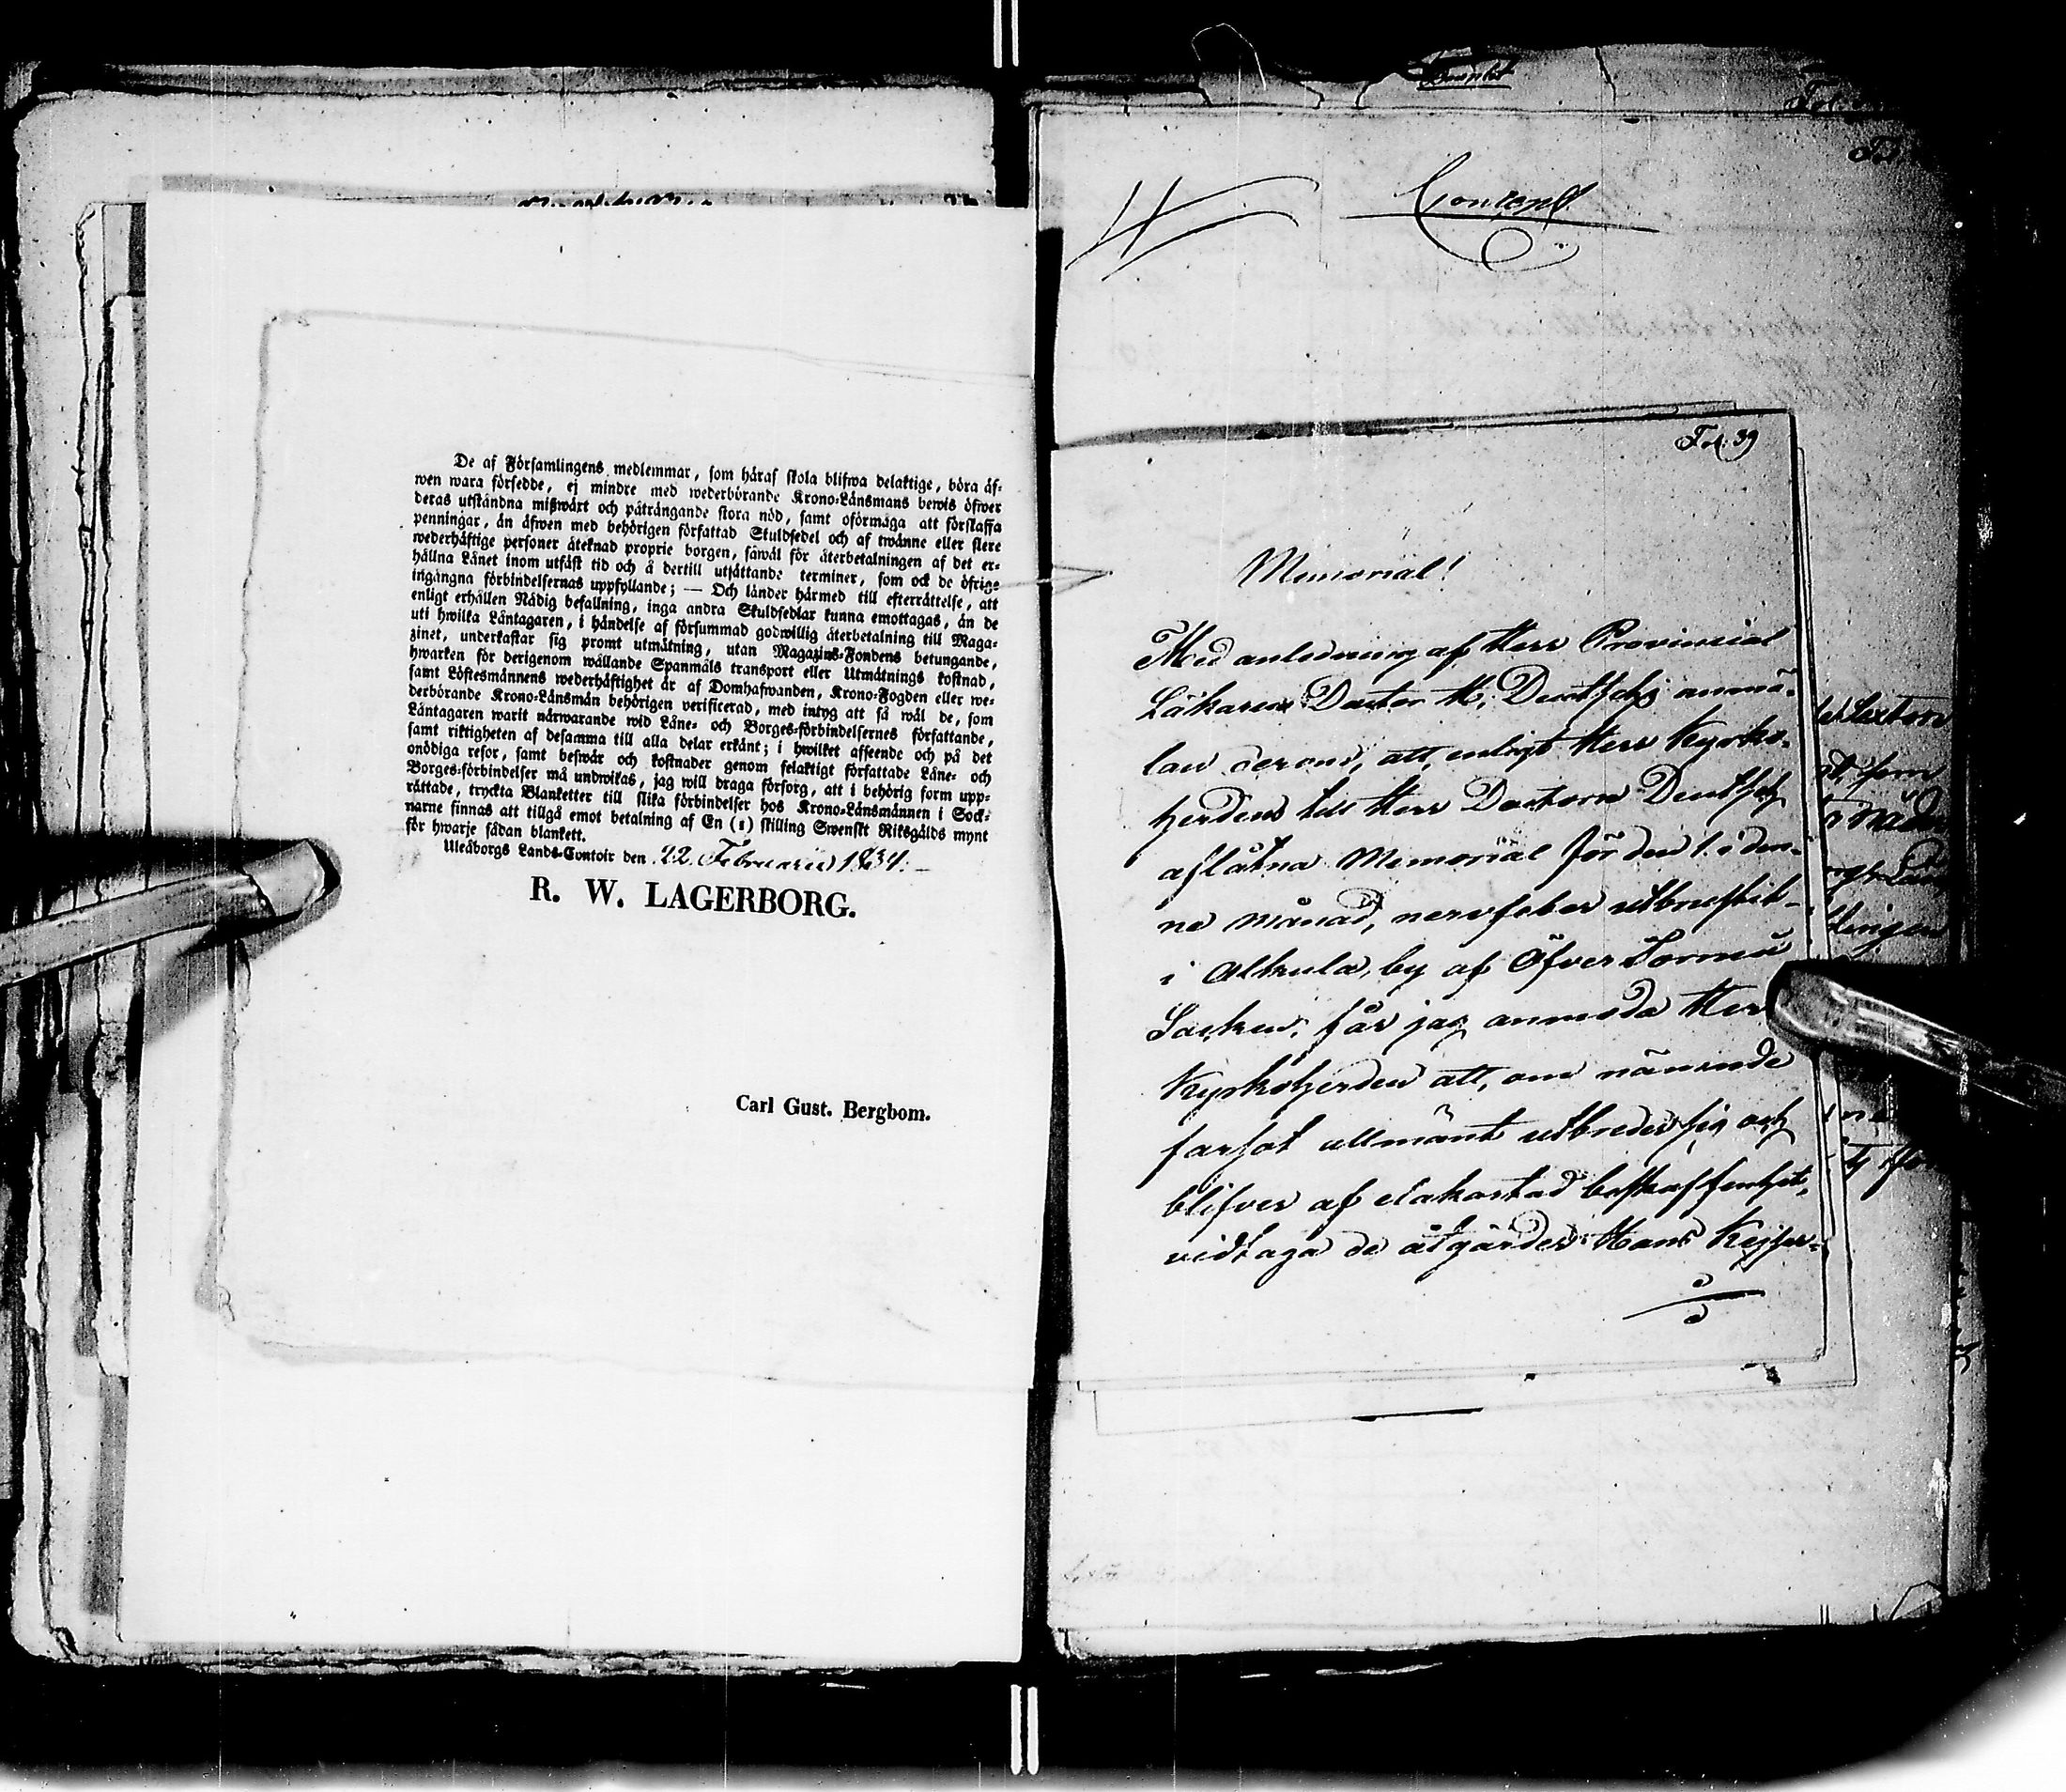 De af Församlingens medlemmar, som häraf skola blifwa delaktige, böra äf-
wen wara försedde, ej mindre med wederbörande Krono-Länsmans bewis öfwer
deras utståndna mißwäxt och påträngande stora nöd, samt oförmåga att förskaffa
penningar, än äfwen med behörigen författad Skuldsedel och af twänne eller flere
wederhäftige personer åteknad proprie borgen, såwäl för återbetalningen af det er-
hållna Lånet inom utfäst tid och å dertill utsättande terminer, som ock de öfrige
ingångna förbindelsernas uppfyllande; — Och länder härmed till efterrättelse, att
enligt erhållen Nådig befallning, inga andra Skuldsedlar kunna emottagas, än de
uti hwilka Låntagaren, i händelse af försummad godwillig återbetalning till Maga-
zinet, underkastar sig promt utmätning, utan Magazins-Fondens betungande,
hwarken för derigenom wållande Spanmåls transport eller Utmätnings kostnad,
samt Löftesmännens wederhäftighet är af Domhafwanden, Krono-Fogden eller we-
derbörande Krono-Länsmän behörigen verificerad, med intyg att så wäl de, som
Låntagaren warit närwarande wid Låne- och Borges-förbindelsernes författande,
samt riktigheten af desamma till alla delar erkänt; i hwilket afseende och på det
onödiga resor, samt beswär och kostnader genom felaktigt författade Låne- och
Borges-förbindelser må undwikas, jag will draga försorg, att i behörig form upp-
rättade, tryckta Blanketter till slika förbindelser hos Krono-Länsmännen i Sock-
narne finnas att tillgå emot betalning af En (1) skilling Swenskt Riksgälds mynt
för hwarje sådan blankett.
Uleåborgs Lands-Contoir den 22 Februarii 1834.
R. W. LAGERBORG.
Carl Gust. Bergbom.
Concept
Fol. 39
Memorial!
Med anledning af Herr Provincial
Läkaren Doctor H. Deutschs anmä-
lan derom, att, enligt Herr Kyrko-
herdens till Herr Doctorn Deutsch
aflåtna Memorial för den 1. i den-
ne månad, nervfeber utbrustit
i Alkula by af Öfver Torneå
Socken, får jag anmoda Herr
Kyrkoherden att, om nämnde
farsot allmänt utbreder sig och
blifver af elakartad beskaffenhet,
vidtaga de åtgärder Hans Kejser-